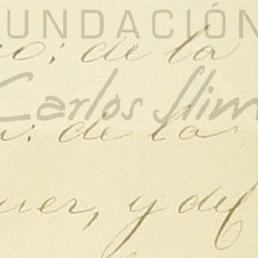 FUNDACIÓN
no; de la
Carlos Slim
a: de la
uer, y del